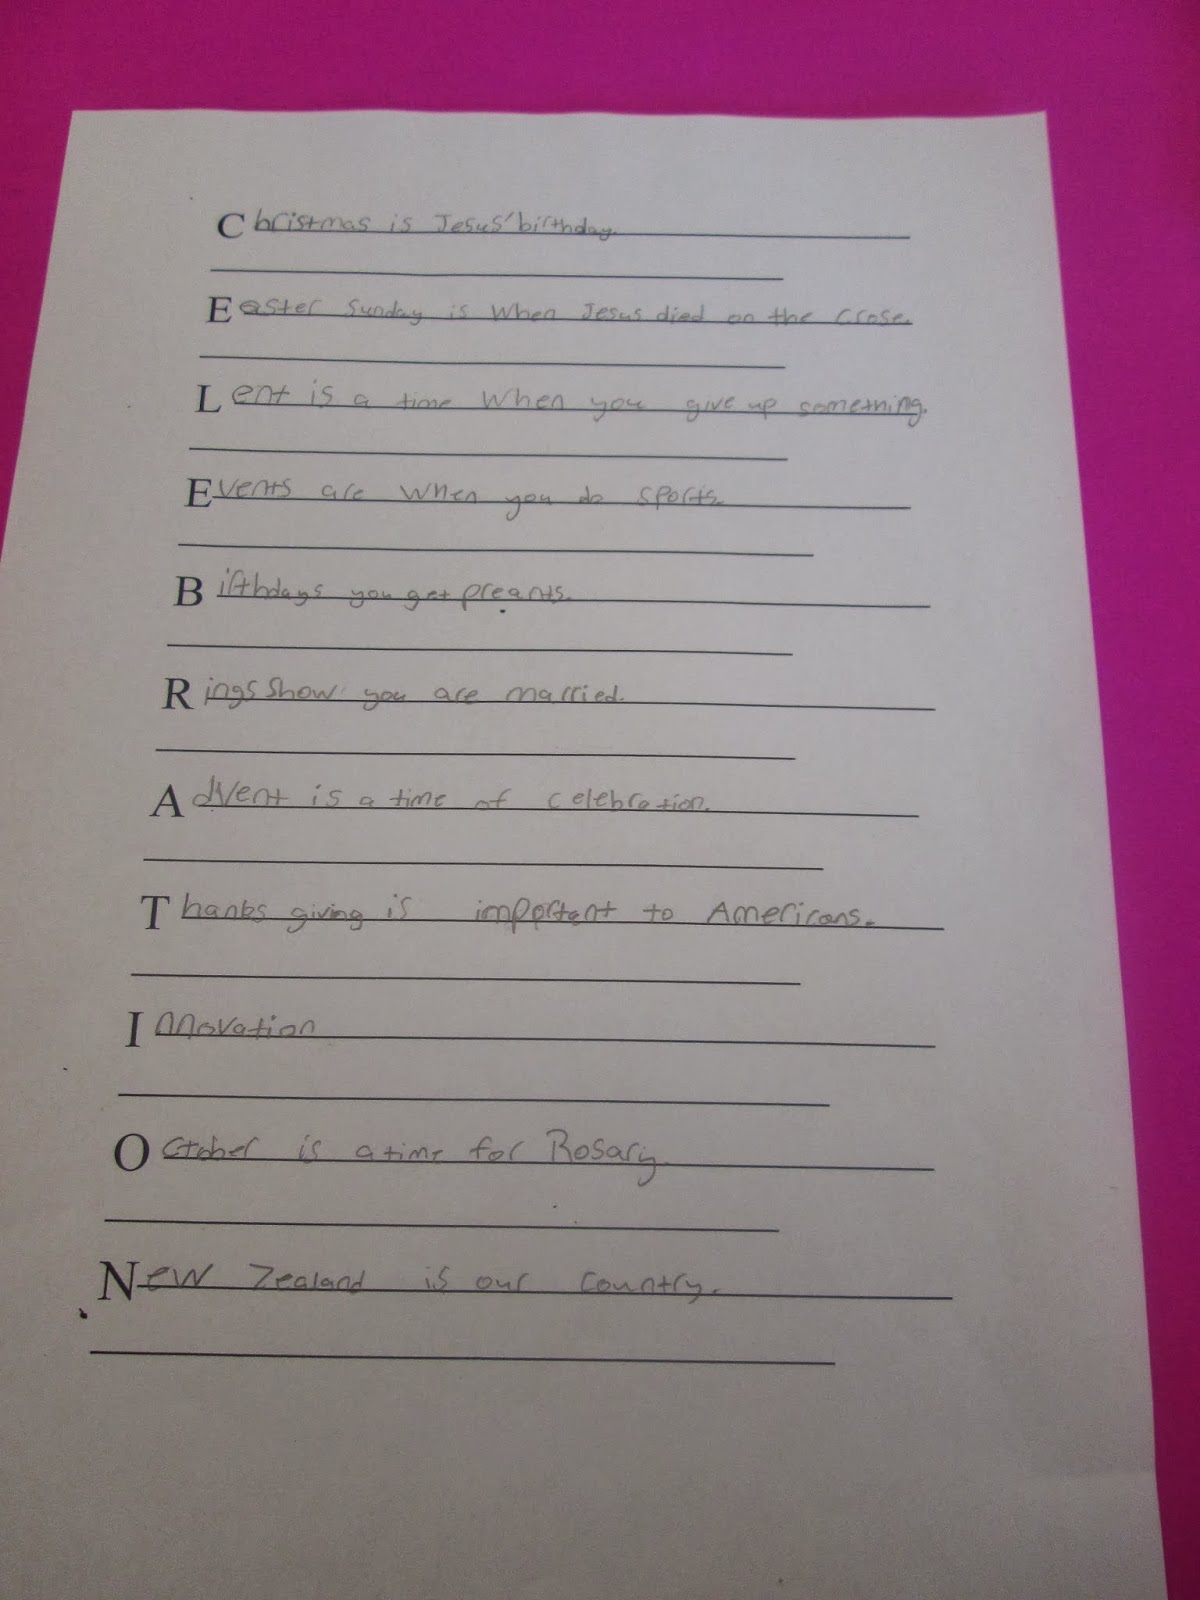 Christmas is Jesus' birthday.
Easter Sunday is When Jesus died on the crose.
Lent is a time When you give up something.
Events are When you do sports.
Birthdays you get preants.
Rings show you are married.
Advent is a time of celebration.
Thanks giving is important to Americans.
Innovation
October is a time for Rosary.
New Zealand is our country.